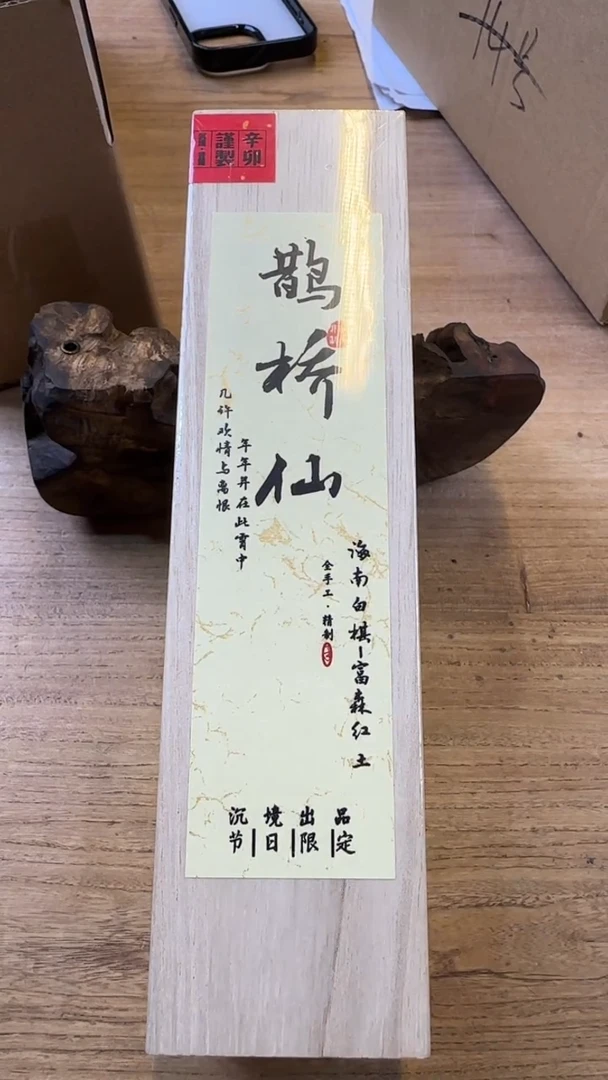 辛卯
謹製
鹊桥仙
年年并在此宵中
几许欢情与离恨
海南白棋-富森红土
全手工·精制
沉境出品
节日限定